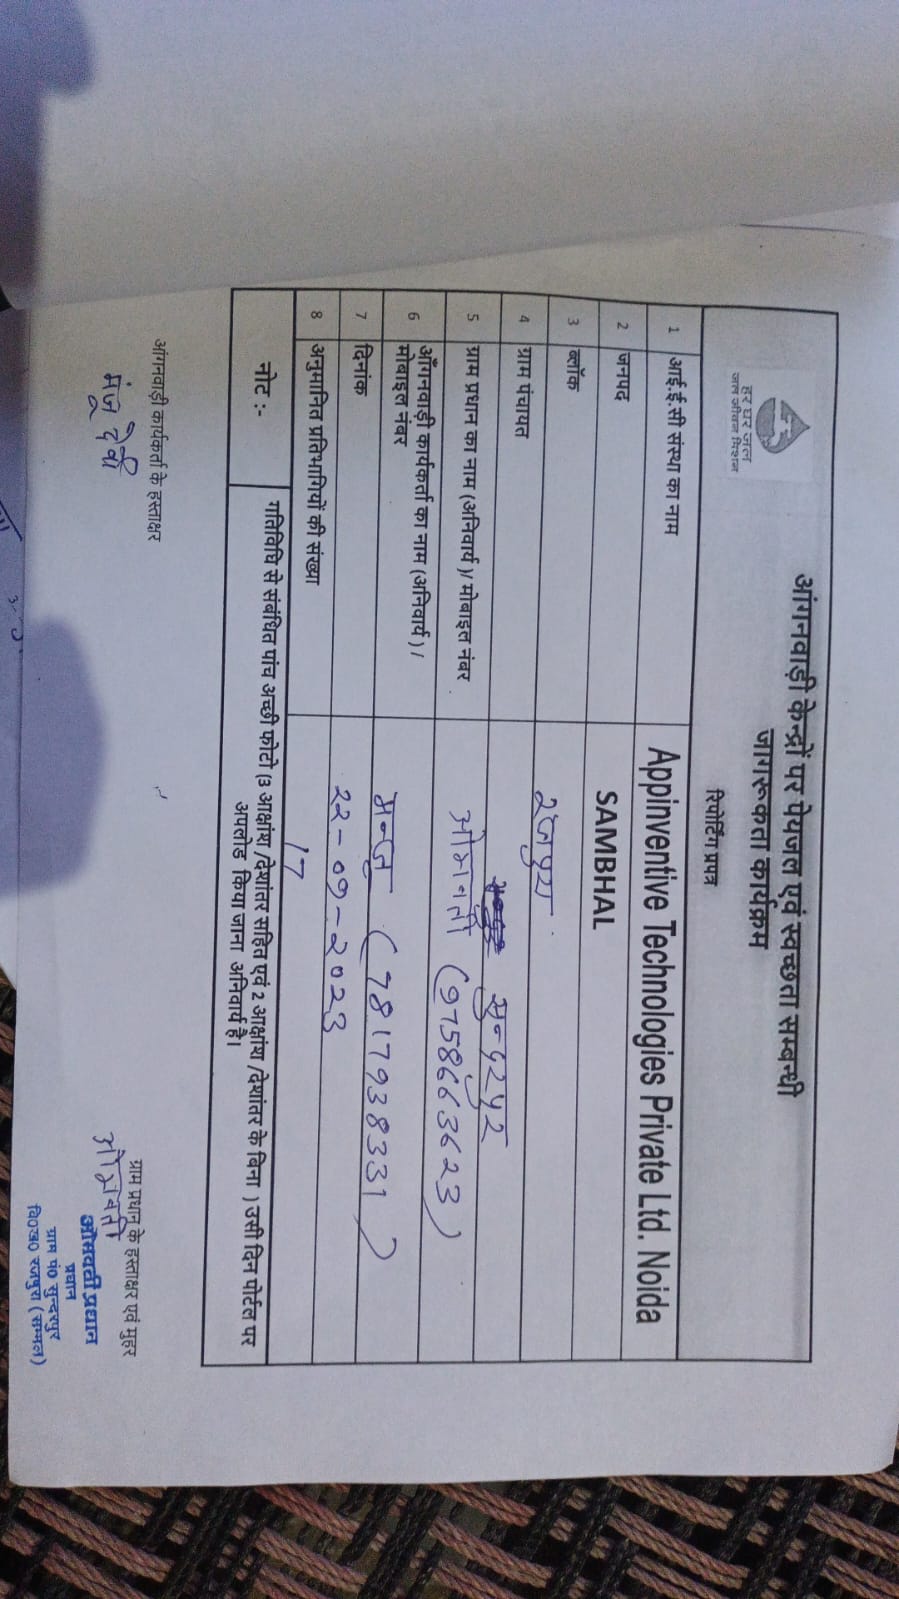 हर घर जल
जल जीवन मिशन
आंगनवाड़ी केन्द्रों पर पेयजल एवं स्वच्छता सम्बन्धी
जागरूकता कार्यक्रम
रिपोर्टिंग प्रपत्र
1 आई.ई.सी संस्था का नाम Appinventive Technologies Private Ltd. Noida
2 जनपद SAMBHAL
3 ब्लॉक रजपुरा
4 ग्राम पंचायत सुन्दरपुर
5 ग्राम प्रधान का नाम (अनिवार्य)/ मोबाइल नंबर ओमवती (9758663623)
6 आँगनवाड़ी कार्यकर्ता का नाम (अनिवार्य) /
मोबाइल नंबर मन्जू (7817938331)
7 दिनांक 22-09-2023
8 अनुमानित प्रतिभागियों की संख्या 17
नोट :- गतिविधि से संबंधित पांच अच्छी फोटो (3 अक्षांश /देशांतर सहित एवं 2 आक्षांश /देशांतर के बिना ) उसी दिन पोर्टल पर
अपलोड किया जाना अनिवार्य है।
आंगनवाड़ी कार्यकर्ता के हस्ताक्षर
मंजू देवी
ग्राम प्रधान के हस्ताक्षर एवं मुहर
ओमवती
ओमवती प्रधान
प्रधान
ग्राम पं० सुन्दरपुर
वि०ख० रजपुरा (सम्भल)